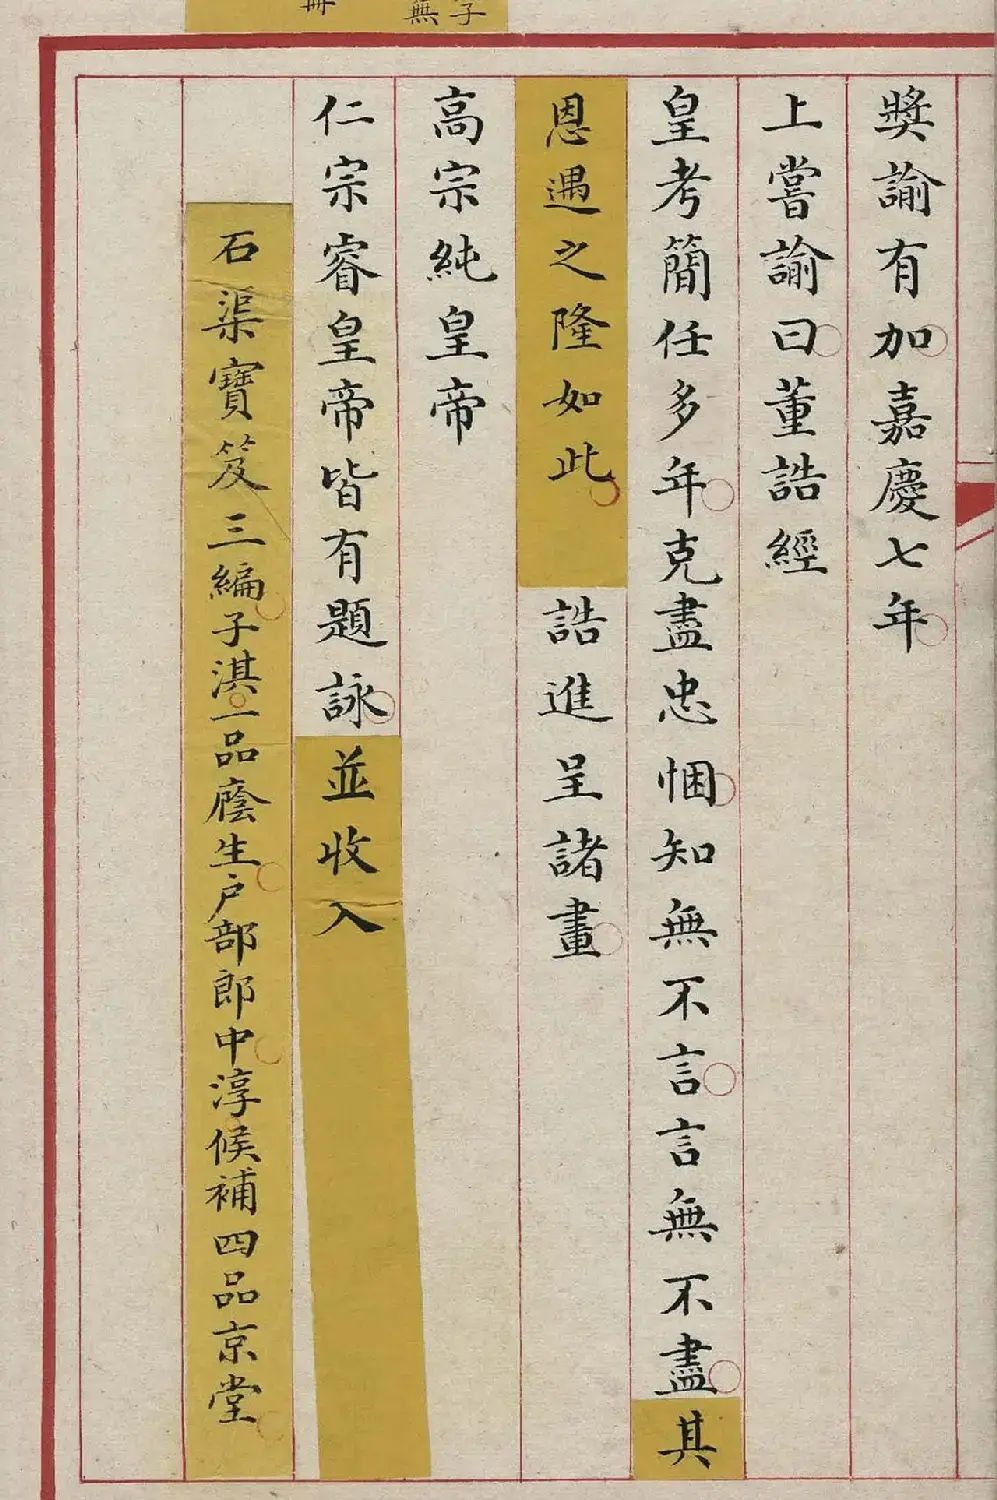 獎諭有加嘉慶七年
上嘗諭曰董誥經
皇考簡任多年克盡忠悃知無不言言無不盡其
恩遇之隆如此誥進呈諸畫
高宗純皇帝
仁宗睿皇帝皆有題詠並收入
石渠寶笈三編子淇一品廕生戶部郎中淳候補四品京堂